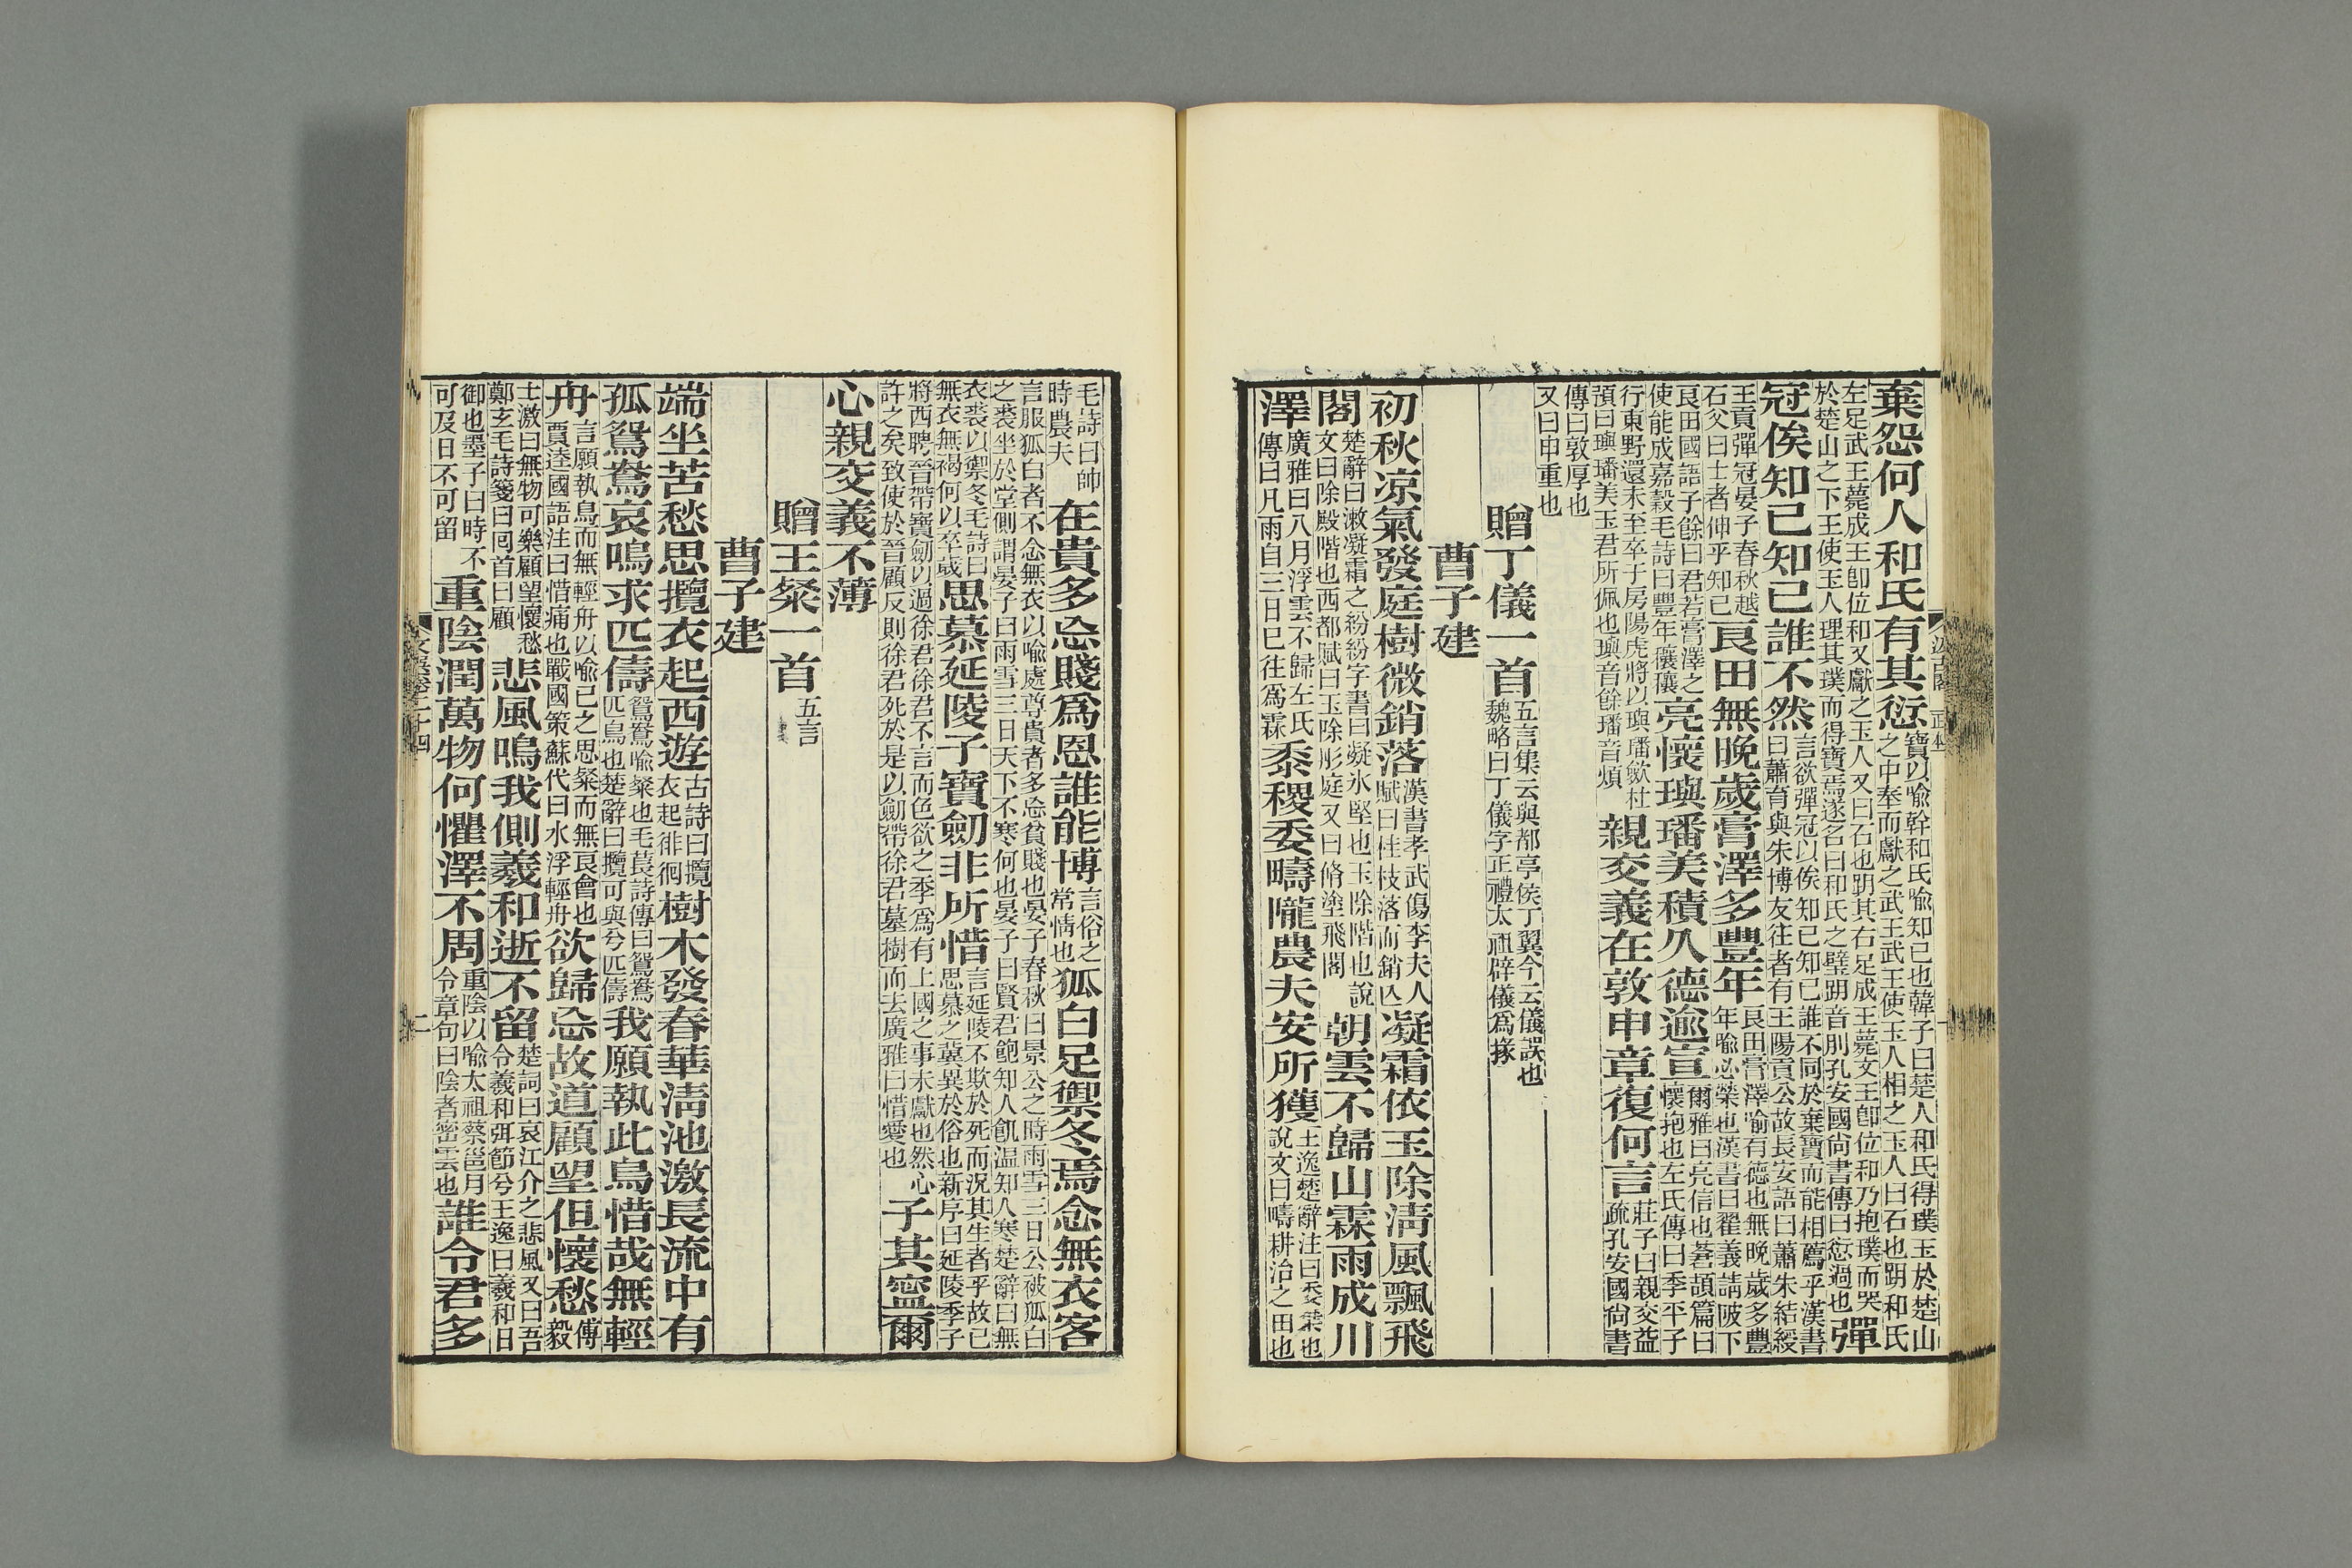 棄怨何人和氏有其愆寶以喻幹和氏喻知己也韓子曰楚人和氏得璞玉於楚山
之中奉而獻之武王武王使玉人相之玉人曰石也刖和氏
左足武王薨成王卽位和又獻之玉人又曰石也刖其右足成王薨文王卽位和乃抱璞而哭
於楚山之下王使玉人理其璞而得寶焉遂名曰和氏之璧刖音刖孔安國尙書傳曰愆過也彈
冠俟知己知己誰不然言欲彈冠以俟知己知己誰不同於棄寶而能相薦乎漢書
曰蕭育與朱博友往者有王陽貢公故長安語曰蕭朱結綬
王貢彈冠晏子春秋越
石父曰士者伸乎知己良田無晚歲膏澤多豐年良田膏澤喻有德也無晚歲多豐
年喻必榮也漢書曰翟義請陂下
良田國語子餘曰君若膏澤之
使能成嘉穀毛詩曰豐年穰穰亮懷璵璠美積久德逾宣爾雅曰亮信也蒼頡篇曰
懷抱也左氏傳曰季平子
行東野還未至卒于房陽虎將以璵璠斂杜
預曰璵璠美玉君所佩也璵音餘璠音煩親交義在敦申章復何言莊子曰親交益
疏孔安國尙書
傳曰敦厚也
又曰申重也
贈丁儀一首五言集云與都亭侯丁翼今云儀誤也
魏略曰丁儀字正禮太祖辟儀爲掾
曹子建
初秋凉氣發庭樹微銷落漢書孝武傷李夫人
賦曰桂枝落而銷亾凝霜依玉除淸風飄飛
閣楚辭曰漱凝霜之紛紛字書曰凝氷堅也玉除階也說
文曰除殿階也西都賦曰玉除彤庭又曰脩塗飛閣朝雲不歸山霖雨成川
澤廣雅曰八月浮雲不歸左氏
傳曰凡雨自三日已往爲霖黍稷委疇隴農夫安所獲王逸楚辭注曰委棄也
說文曰疇耕治之田也
毛詩曰帥
時農夫在貴多忘賤爲恩誰能博言俗之
常情也狐白足禦冬焉念無衣客
言服狐白者不念無衣以喩處尊貴者多忘貧賤也晏子春秋曰景公之時雨雪三日公被狐白
之裘坐於堂側謂晏子曰雨雪三日天下不寒何也晏子曰賢君飽知人飢温知人寒楚辭曰無
衣裘以禦冬毛詩曰
無衣無褐何以卒歲思慕延陵子寶劒非所惜言延陵不欺於死而況其生者乎故已
思慕之冀異於俗也新序曰延陵季子
將西聘晉帶寶劒以過徐君徐君不言而色欲之季爲有上國之事未獻也然心
許之矣致使於晉顧反則徐君死於是以劒帶徐君墓樹而去廣雅曰惜愛也子其寧爾
心親交義不薄
贈王粲一首五言
曹子建
端坐苦愁思攬衣起西遊古詩曰攬
衣起徘徊樹木發春華淸池激長流中有
孤鴛鴦哀鳴求匹儔鴛鴦喩粲也毛萇詩傳曰鴛鴦
匹鳥也楚辭曰攬可與兮匹儔我願執此鳥惜哉無輕
舟言願執鳥而無輕舟以喩己之思粲而無良會也
賈逵國語注曰惜痛也戰國策蘇代曰水浮輕舟欲歸忘故道顧望但懷愁傅毅
士激曰無物可樂顧望懷愁
鄭玄毛詩箋曰囘首曰顧悲風鳴我側羲和逝不留楚詞曰哀江介之悲風又曰吾
令羲和弭節兮王逸曰羲和日
御也墨子曰時不
可及日不可留重陰潤萬物何懼澤不周重陰以喩太祖蔡邕月
令章句曰陰者密雲也誰令君多
文選卷二十四
二